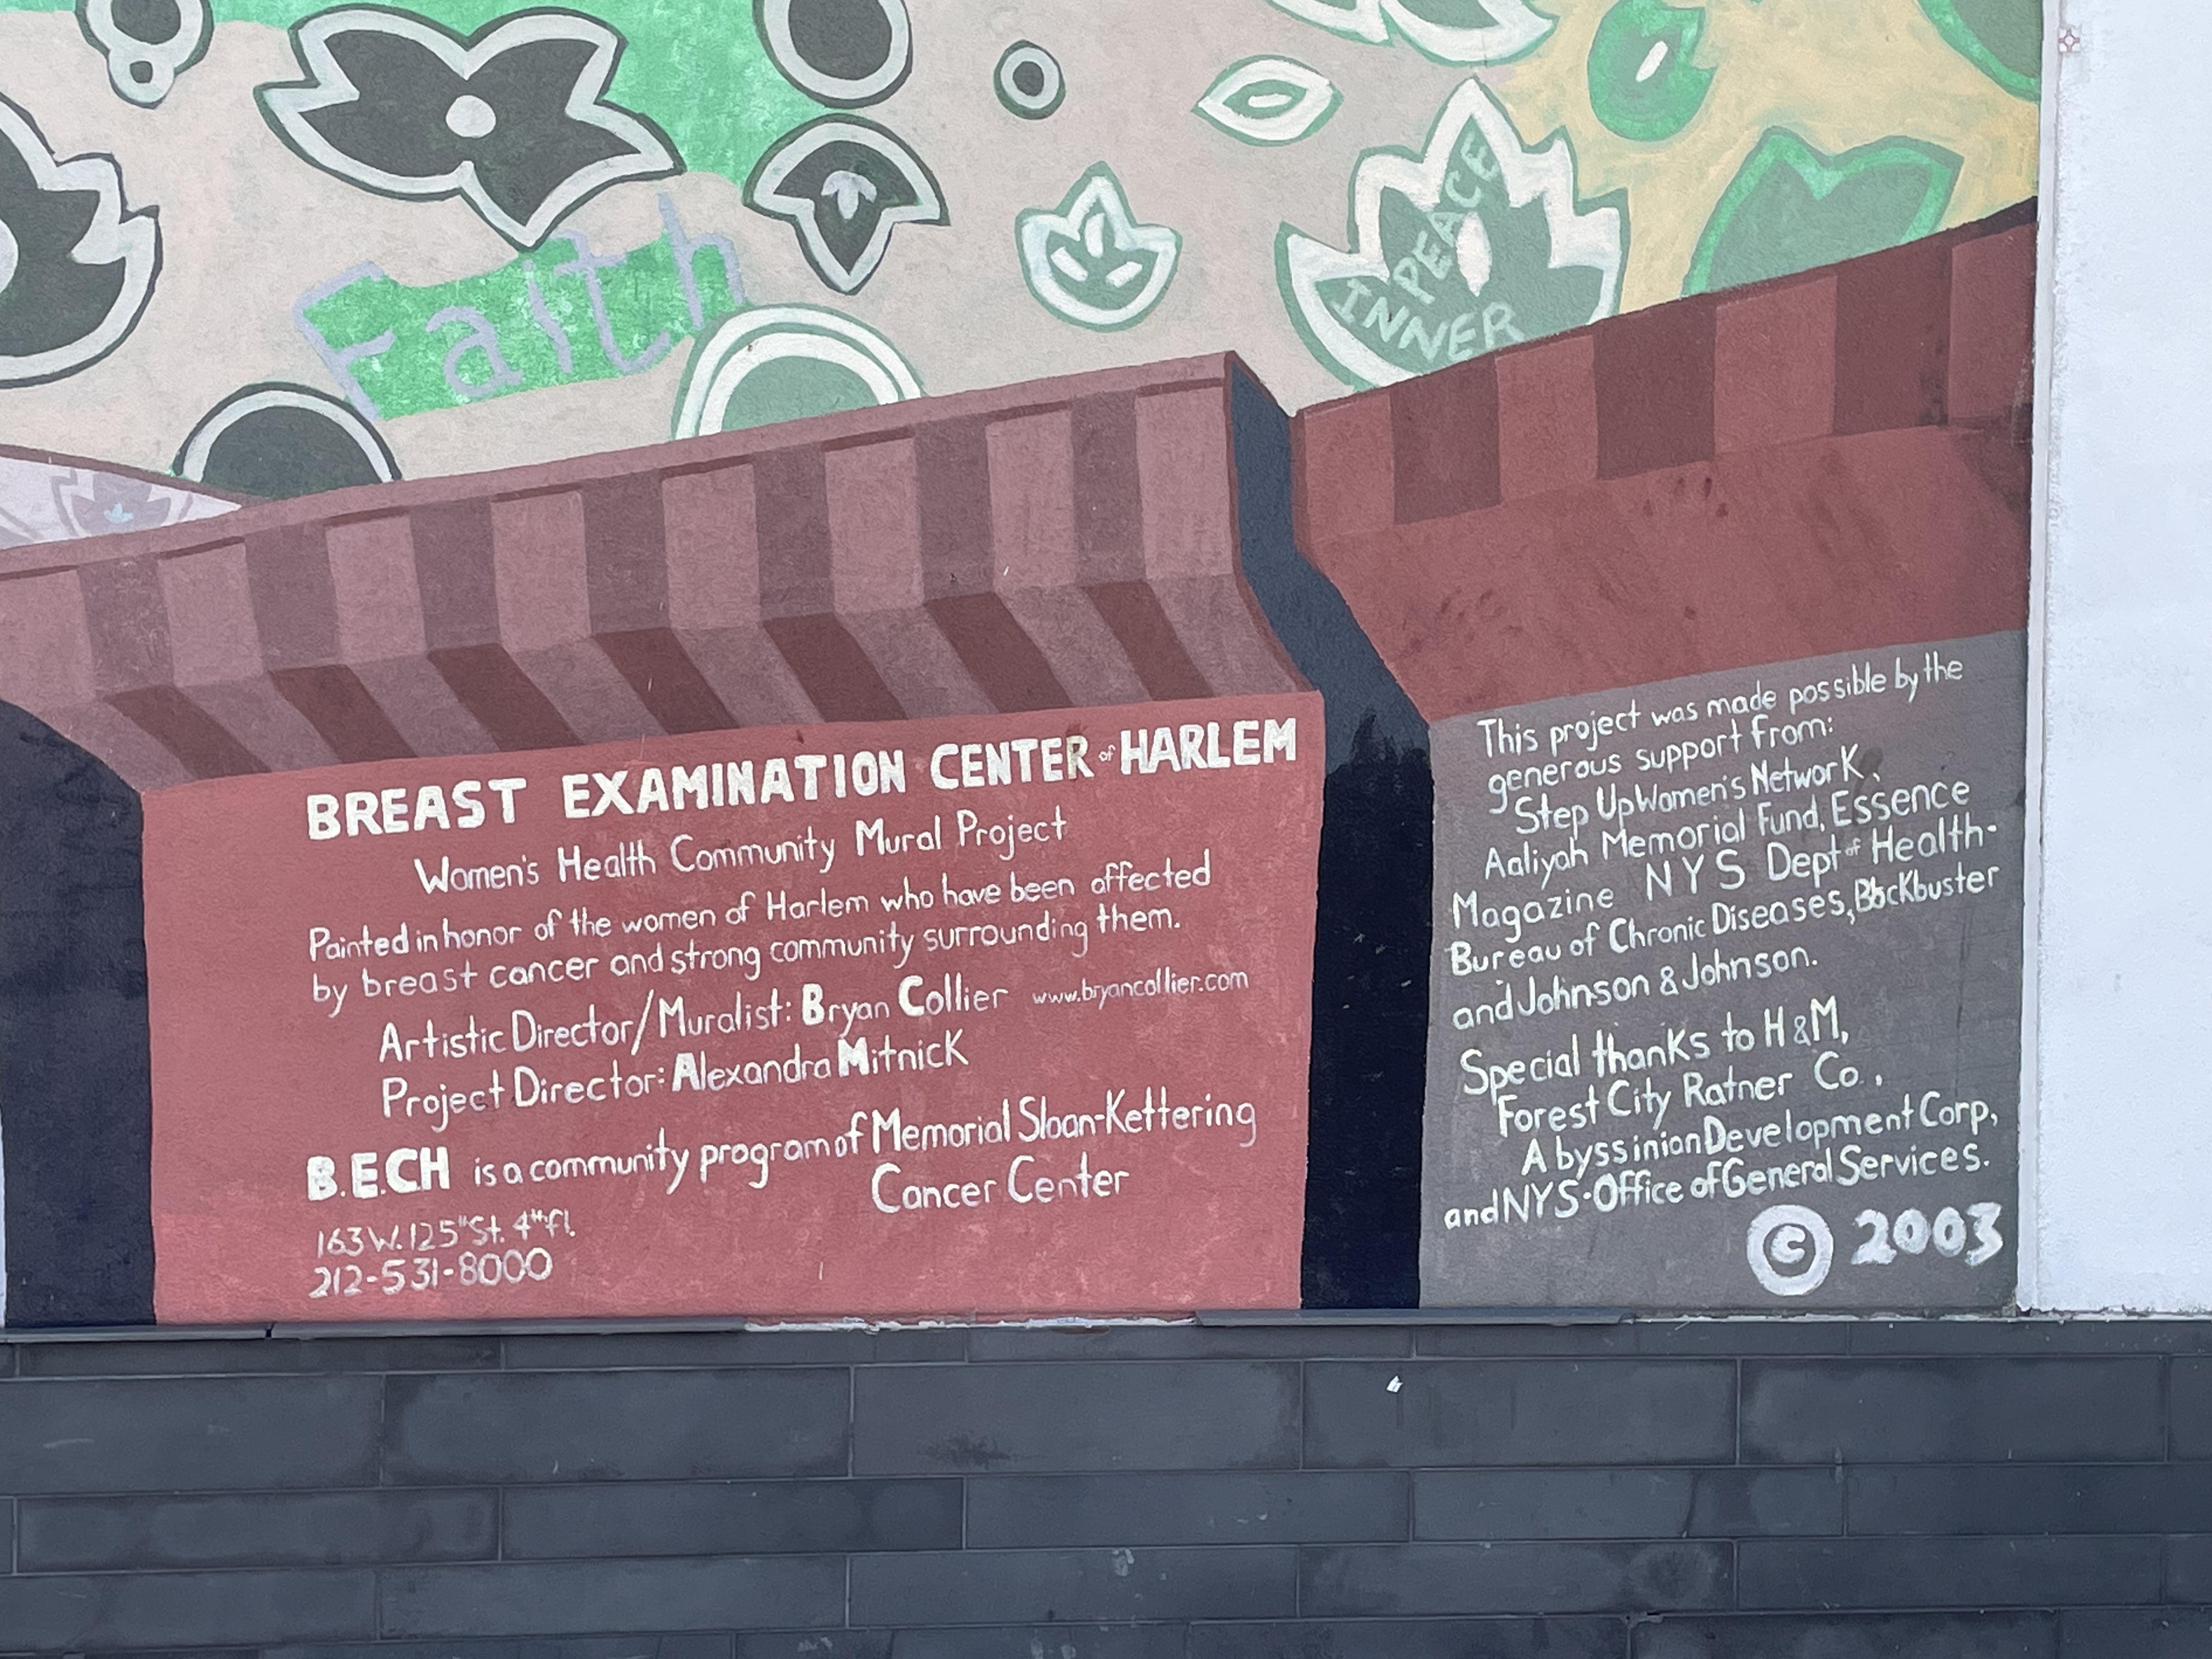 Faith
INNER
PEACE
BREAST EXAMINATION CENTER of HARLEM
Women's Health Community Mural Project
Painted in honor of the women of Harlem who have been affected
by breast cancer and strong community surrounding them.
Artistic Director/Muralist: Bryan Collier www.bryancollier.com
Project Director: Alexandra Mitnick
B.E.CH is a community program of Memorial Sloan-Kettering
Cancer Center
163 W. 125th St. 4th fl.
212-531-8000
This project was made possible by the
generous support from:
Step Up Women's Network,
Aaliyah Memorial Fund, Essence
Magazine NYS Dept of Health-
Bureau of Chronic Diseases, Blockbuster
and Johnson & Johnson.
Special thanks to H&M,
Forest City Ratner Co.,
Abyssinian Development Corp,
and NYS-Office of General Services.
© 2003